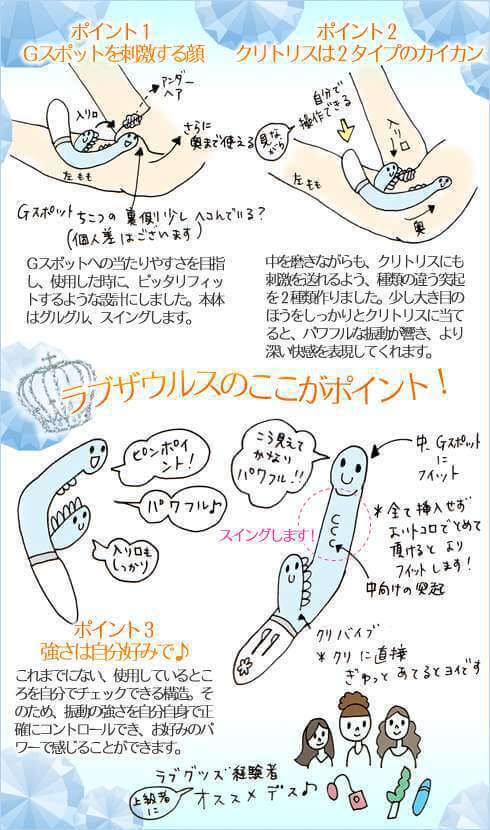 ポイント1
Gスポットを刺激する顔
アンダーヘア
入り口
さらに
奥まで使える
左もも
Gスポット ちこつの裏側 少しへコんでいる?
(個人差はございます)
Gスポットへの当たりやすさを目指
し、使用した時に、ピッタリフィッ
トするような設計にしました。本体
はグルグル、スイングします。
ポイント2
クリトリスは2タイプのカイカン
自分で
操作できる
見ながら
入り口
左もも
奥
中を磨きながらも、クリトリスにも
刺激を送れるよう、種類の違う突起
を2種類作りました。少し大き目の
ほうをしっかりとクリトリスに当て
ると、パワフルな振動が響き、より
深い快感を表現してくれます。
ラブザウルスのここがポイント!
ピンポイ
ント!
パワフル♪
入り口も
しっかり
こう見えて
かなり
パワフル!!
中、Gスポット
に
フィット
スイングします!
*全て挿入せず
よいトコロでとめて
頂けると より
フィットします!
中向けの突起
クリバイブ
*クリに直接
ぎゅっと あてるとヨイです
ポイント3
強さは自分好みで♪
これまでにない、使用しているとこ
ろを自分でチェックできる構造。そ
のため、振動の強さを自分自身で正
確にコントロールでき、お好みのパ
ワーで感じることができます。
ラブグッズ経験者
上級者に
オススメデス♪